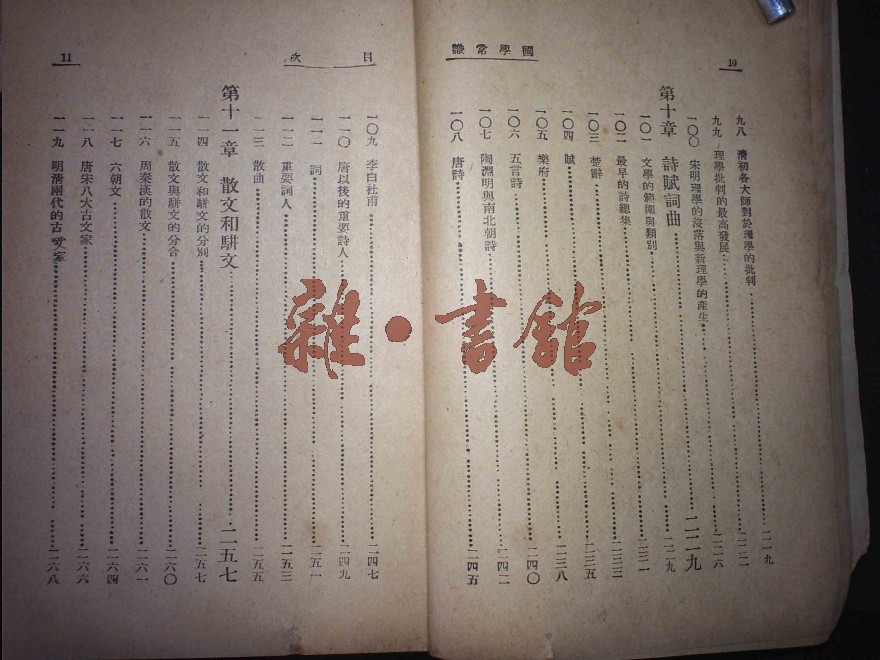 國學常識
10
九八 清初各大師對於理學的批判 二一九
九九 理學批判的最高發展 二二二
一〇〇 宋明理學的沒落與新理學的產生 二二六
第十章 詩賦詞曲 二二九
一〇一 文學的範圍與類別 二二九
一〇二 最早的詩總集 二三一
一〇三 楚辭 二三三
一〇四 賦 二三五
一〇五 樂府 二三八
一〇六 五言詩 二四〇
一〇七 陶淵明與南北朝詩 二四二
一〇八 唐詩 二四五
目次
11
一〇九 李白杜甫 二四七
一一〇 唐以後的重要詩人 二四九
一一一 詞 二五一
一一二 重要詞人 二五三
一一三 散曲 二五五
第十一章 散文和駢文 二五七
一一四 散文和駢文的分別 二五七
一一五 散文與駢文的分合 二六〇
一一六 周秦漢的散文 二六一
一一七 六朝文 二六四
一一八 唐宋八大古文家 二六六
一一九 明清兩代的古文家 二六八
雜·書館